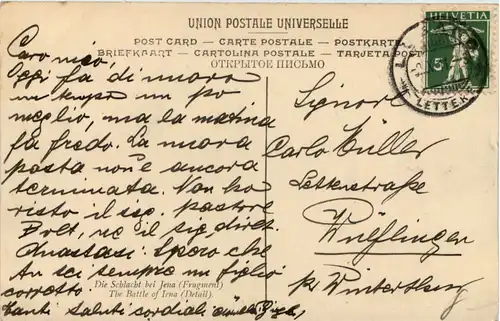 UNION POSTALE UNIVERSELLE
POST CARD — CARTE POSTALE — POSTKARTE
BRIEFKAART — CARTOLINA POSTALE — TARJETA POSTAL
ОТКРЫТОЕ ПИСЬМО
HELVETIA
5
LETTEN
Caro mio,
Oggi fa di nuovo
un tempo un po
meglio, ma la matina
fa fredo. La nuova
posta non è ancora
terminata. Non ho
visto il sig. pastore
Bolt, ne il sig. dirett.
Anastasi. Spero che
tu sei sempre un figlio
corretto.
Tanti saluti sordiali
Die Schlacht bei Jena (Fragment)
The Battle of Jena (Detail).
Signor
Carlo Müller
Lettenstraße
Wülflingen
pr Winterthur